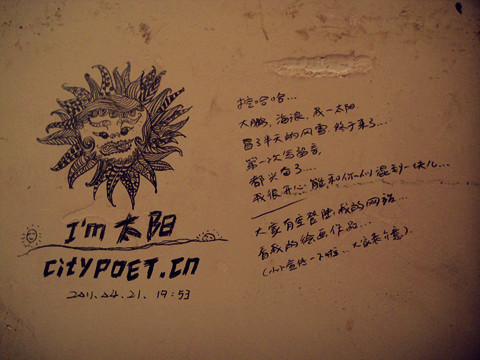 I'm 太阳
citYPOET.cn
2011.04.21. 19:53
哈哈...
大鹏,海浪,我一太阳
冒了半天的风雪,终于来了...
第一次写留言,
我很开心,能和你们混到一块儿...
大家有空登陆我的网站...
看我的绘画作品...
(小小宣传一下啦..大家